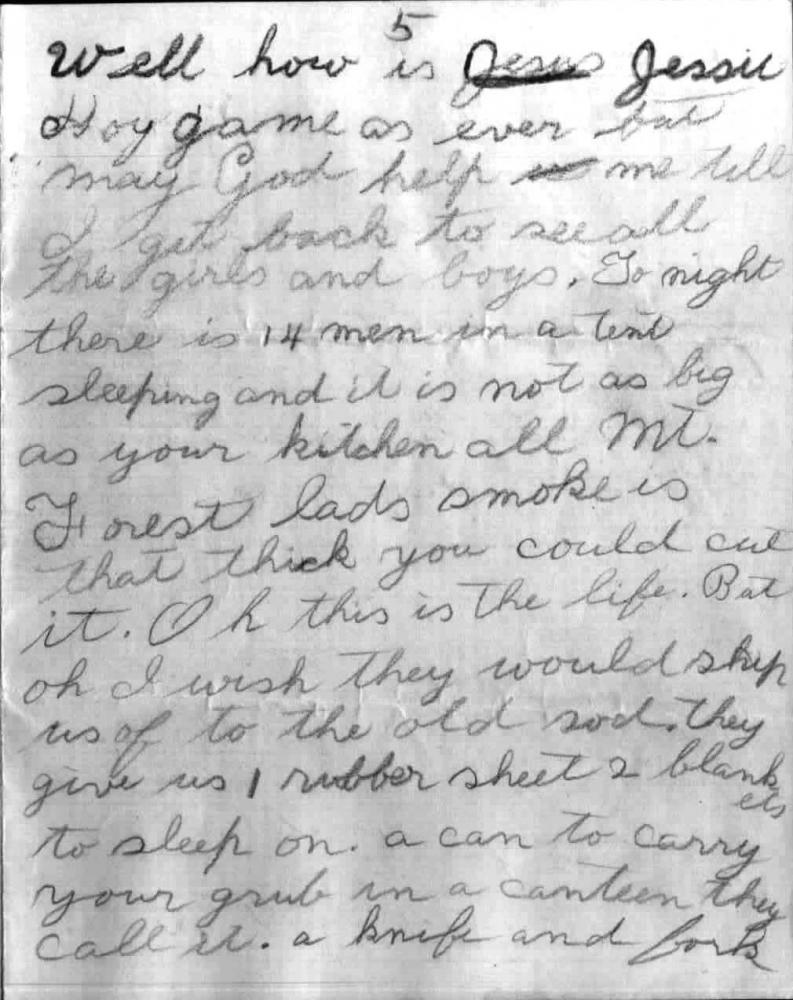 5
Well how is Jesus Jessie
Hoy game as ever but
may God help us me till
I get back to see all
the girls and boys. To night
there is 14 men in a tent
sleeping and it is not as big
as your kitchen all Mt.
Forest lads smoke is
that thick you could cut
it. Oh this is the life. But
oh I wish they would ship
us of to the old sod. they
give us 1 rubber sheet 2 blank
ets
to sleep on. a can to carry
your grub in a canteen they
call it. a knife and fork